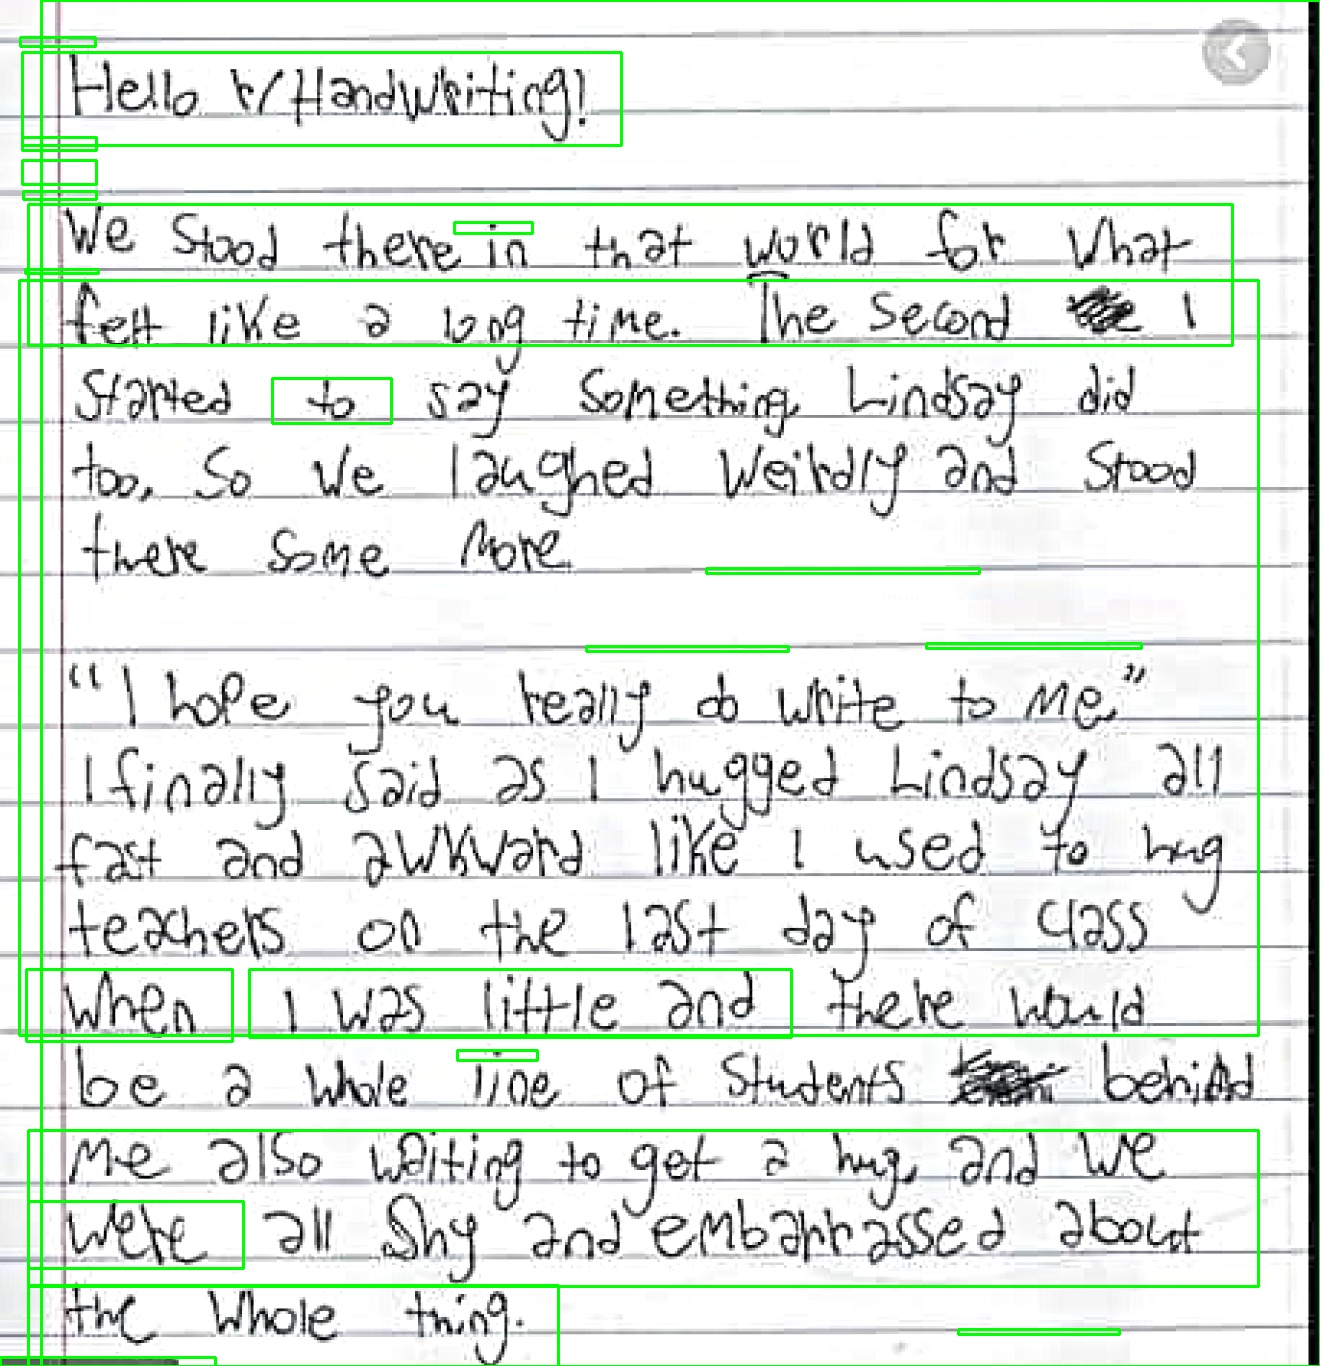 Hello r/Handwriting!
We stood there in that world for what
felt like a long time. The second I
started to say something, Lindsay did
too, so we laughed weirdly and stood
there some more.
"I hope you really do write to me"
I finally said as I hugged Lindsay all
fast and awkward like I used to hug
teachers on the last day of class
when I was little and there would
be a whole line of students behind
me also waiting to get a hug, and we
were all shy and embarrassed about
the whole thing.